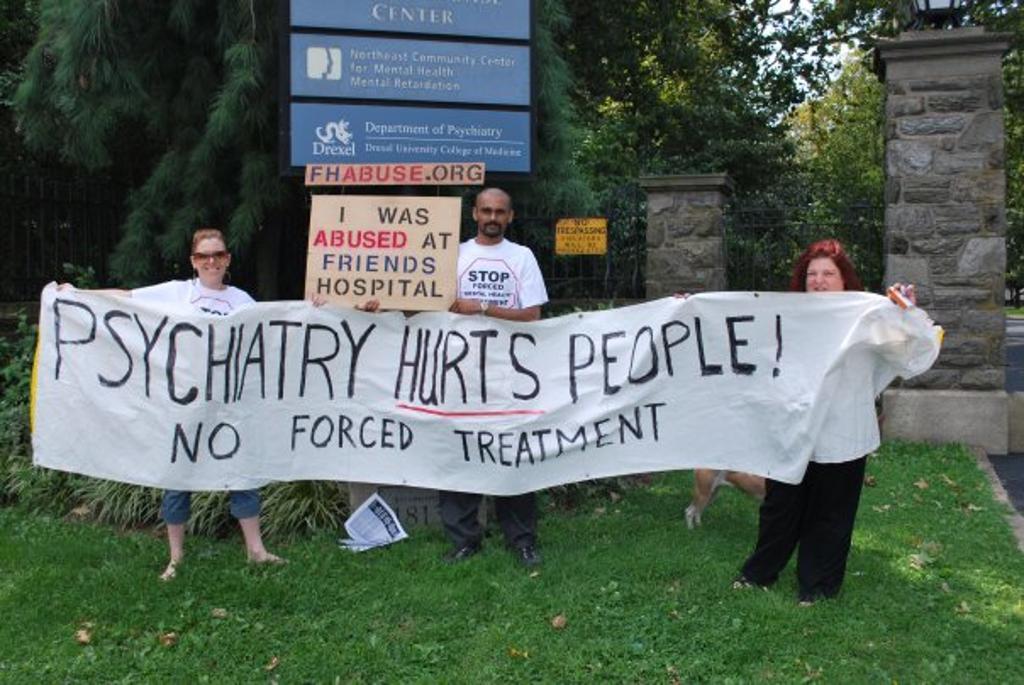 CENTER
Northeast Community Center
for Mental Health
Mental Retardation
Drexel
Department of Psychiatry
Drexel University College of Medicine
FHABUSE.ORG
I WAS
ABUSED AT
FRIENDS
HOSPITAL
STOP
FORCED
MENTAL HEALTH
NO
TRESPASSING
VIOLATORS
WILL BE
PSYCHIATRY HURTS PEOPLE!
NO FORCED TREATMENT